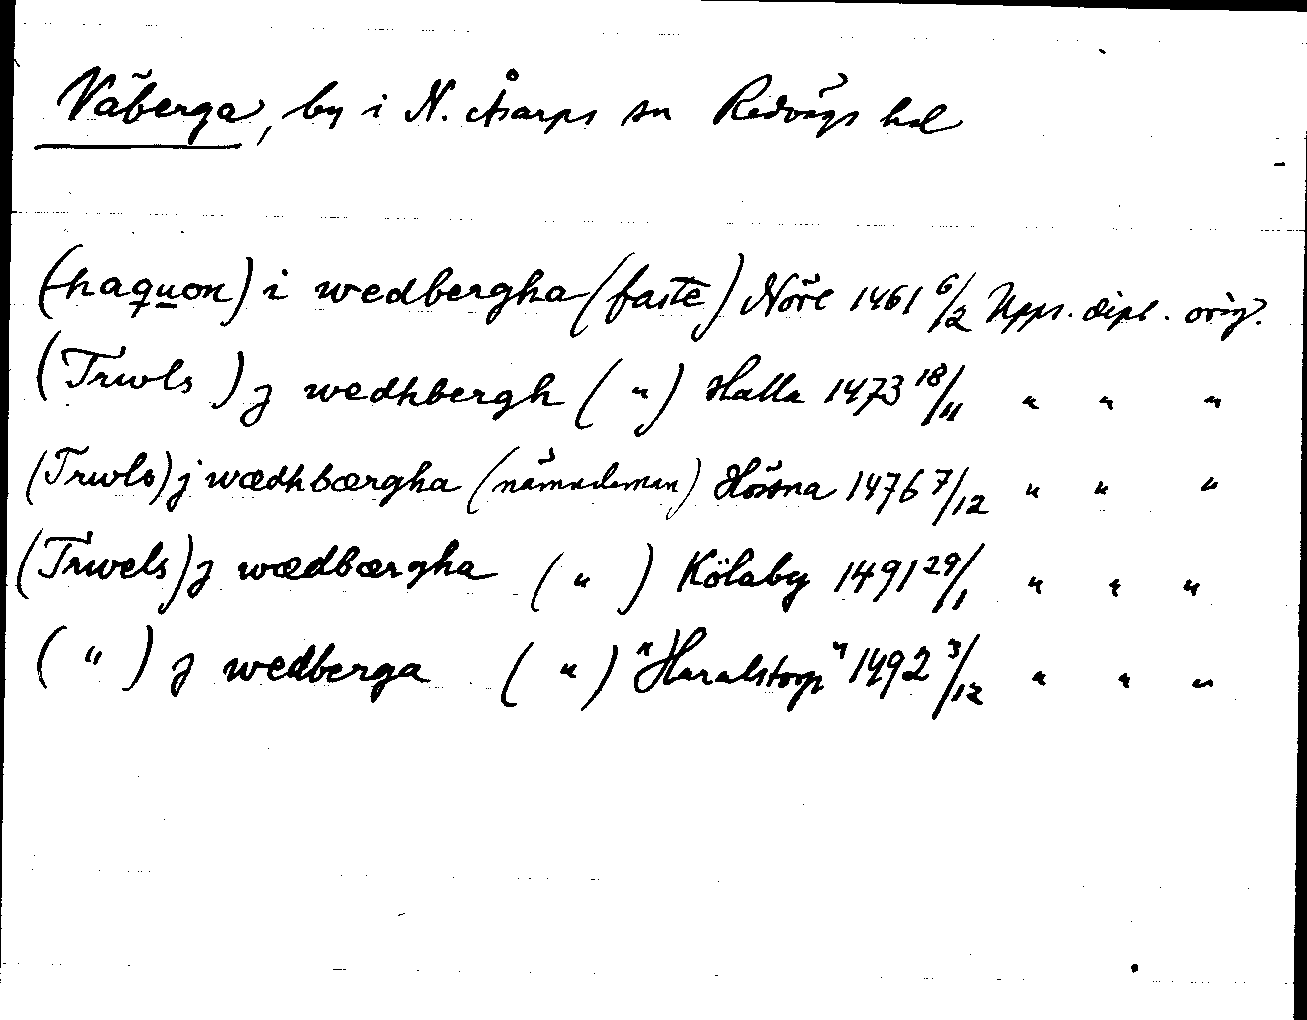 Väberga, by i N. Åsarps sn Redvägs hd
(haquon) i wedbergha (faste) Nöre 1461 6/2 Upps. dipl. orig.
(Trwls) j wedhbergh (") Halla 1473 18/11 " " "
(Trwls) j wædhbærgha (nämndeman) Hössna 1476 7/12 " " "
(Trwels) j wædbærgha (") Kölaby 1491 29/1 " " "
(") j wedberga (") "Haralstorp" 1492 3/12 " " "